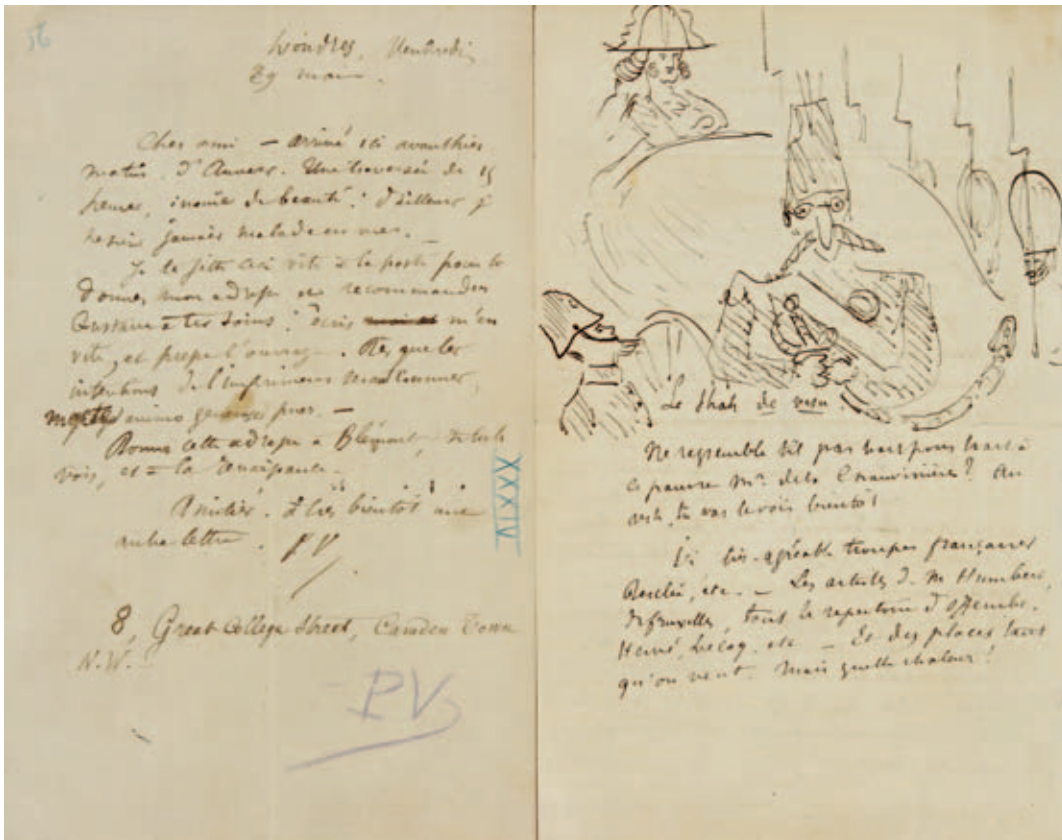 56
Londres, Vendredi
29 mai
Cher ami — arrivé ici avanthier
matin d'Anvers. Une traversée de 15
heures, inouïe de beauté : d'ailleurs je
ne suis jamais malade en mer. —
Je te jette ceci vite à la poste pour te
donner mon adresse et recommander
à tes soins : écris m'en
vite, et presse l'ouvrage. Dès que les
intentions de l'imprimeur connues,
animo puer. —
Donne cette adresse à Blémont, si tu le
vois, et à la Renaissance.
Amitiés. Et très bientôt une
autre lettre. PV
8, Great College Street, Camden Town
N.W. —
PV
XXXIV
Le Shah de visu :
Ne ressemble t'il pas trait pour trait à
ce pauvre Mr. de la Chauvinière ? Au
reste, tu vas le voir bientôt
Ici très-agréable troupes françaises
etc. — Les artistes de M Humbert,
de Bruxelles, tout le repertoire d'Offenbach,
Hervé, Lecoq, etc — Et des places tant
qu'on veut. Mais quelle chaleur !